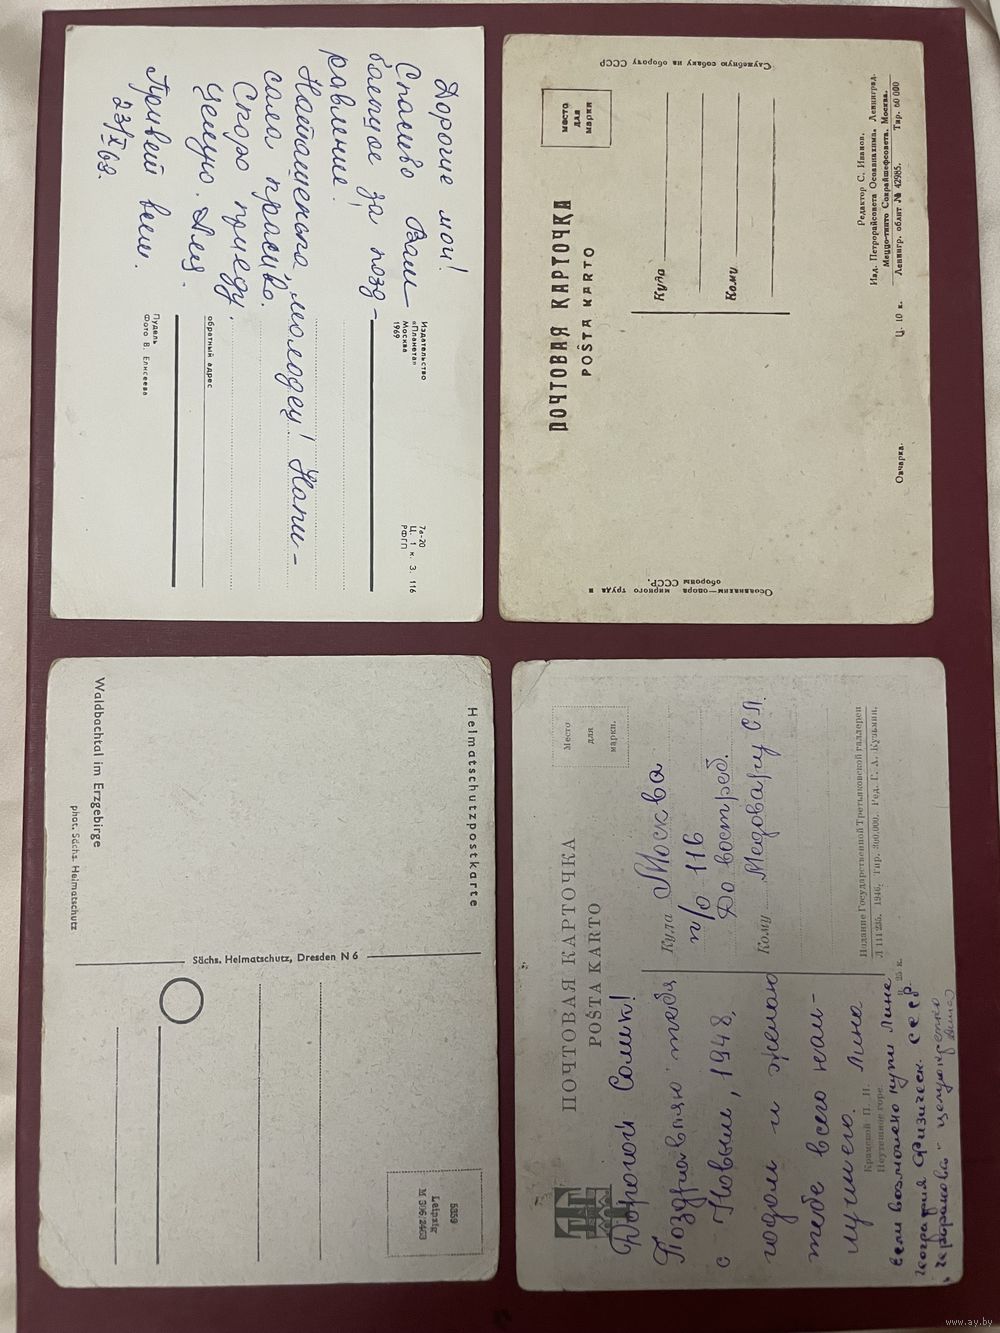 Дорогие мои!
Спасибо Вам
большое за позд-
равление!
Наташенька, молодец! Напи-
сала красиво.
Скоро приеду.
Целую.
Привет всем.
23/X 69.
Издательство
«Планета»
Москва
1969
7а-20
Ц. 1 к. З. 116
РФГП
обратный адрес
Пудель
Фото В. Елисеева
Служебную собаку на оборону СССР
место
для
марки
ПОЧТОВАЯ КАРТОЧКА
POŜTA KARTO
Куда
Кому
Редактор С. Иванов.
Изд. Петрорайсовета Осоавиахима. Ленинград.
Меццо-тинто Сокрайшефсовета. Москва.
Ленингр. облит № 42985. Тир. 60 000
Ц. 10 к.
Овчарка.
Осоавиахим—опора мирного труда и
обороны СССР.
Heimatschutzpostkarte
Waldbachtal im Erzgebirge
phot. Sächs. Heimatschutz
Sächs. Heimatschutz, Dresden N 6
5359
Leipzig
M 306
Место
для
марки.
ПОЧТОВАЯ КАРТОЧКА
POŜTA KARTO
Куда Москва
п/о 116
До востреб.
Кому Медовару С Л.
Дорогой Солик!
Поздравляю тебя
с Новым, 1948,
годом и желаю
тебе всего наи-
лучшего. Лина
Если возможно купи Лине
География физическ. СССР.
целую
Издание Государственной Третьяковской галлереи
Л 111235. 1946. Тир. 300.000. Ред. Г. А. Кузьмин.
25 к.
Крамской И. Н.
Неутешное горе.
www.ay.by